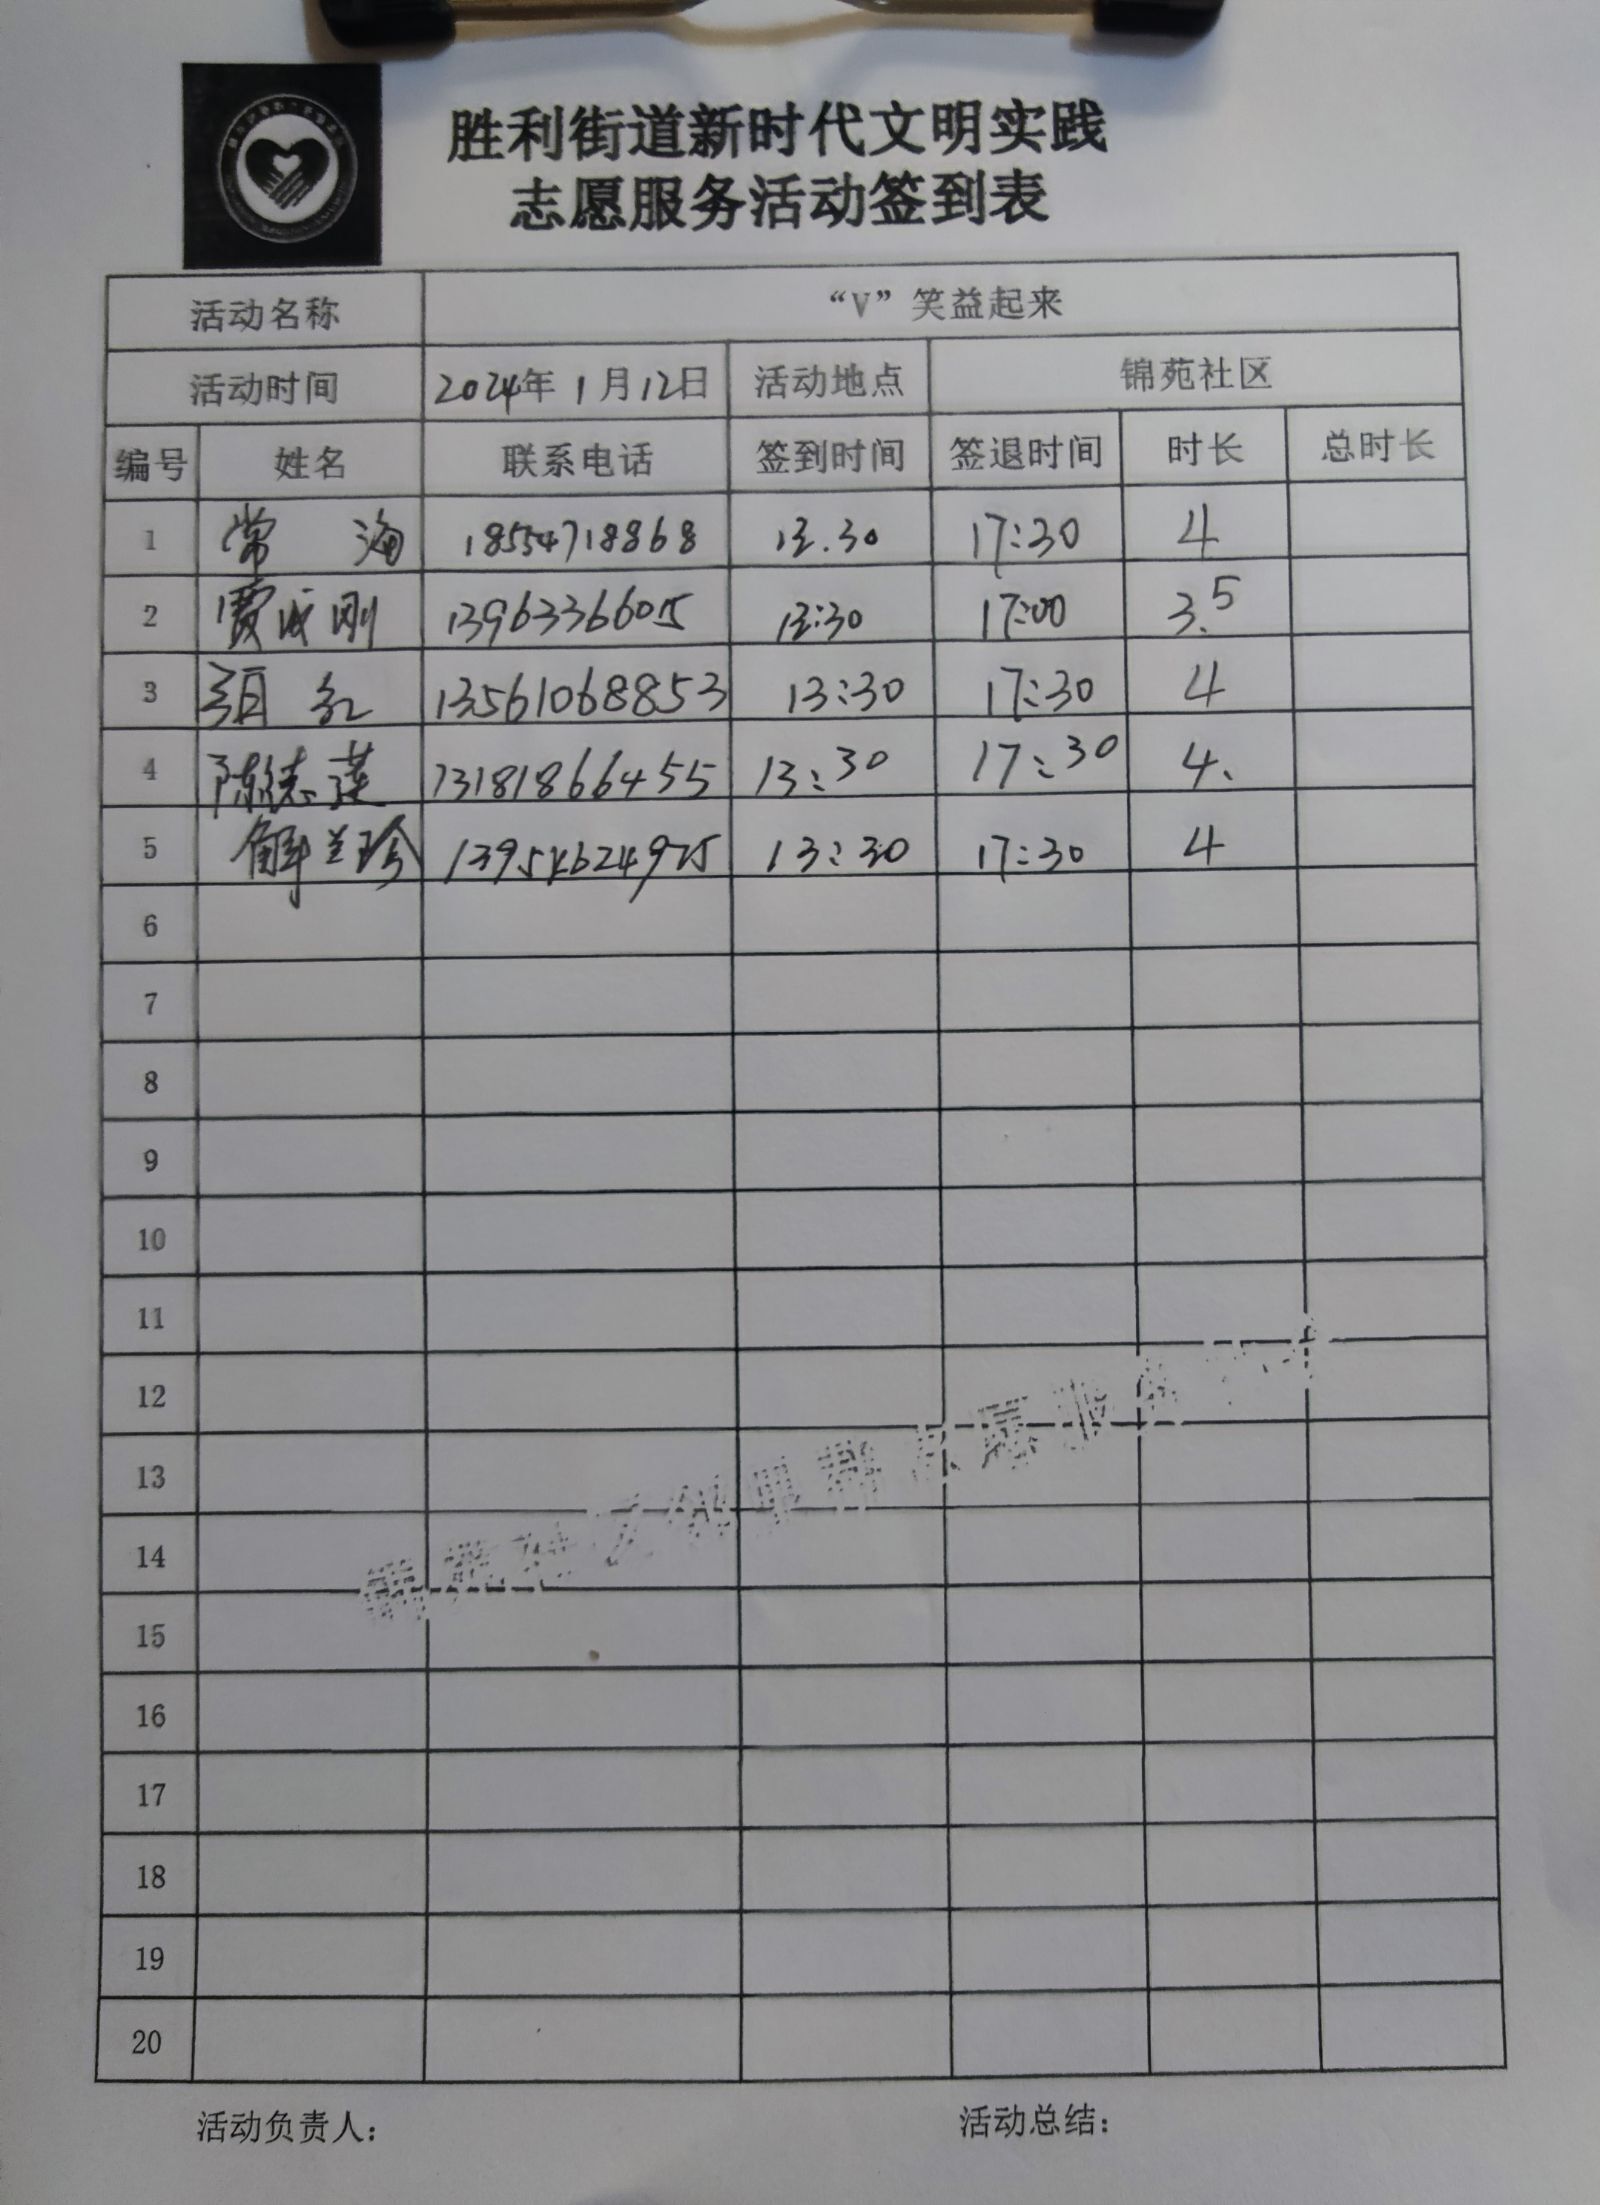 胜利街道新时代文明实践
志愿服务活动签到表
活动名称 “V”笑益起来
活动时间 2024年 1月12日 活动地点 锦苑社区
编号 姓名 联系电话 签到时间 签退时间 时长 总时长
1 常 海 18554718868 13.30 17:30 4
2 贾成刚 13963366015 13:30 17:00 3.5
3 红 13561068853 13:30 17:30 4
4 陈德莲 13181866455 13:30 17:30 4.
5 解兰珍 13954624975 13:30 17:30 4
6
7
8
9
10
11
12
13
14
15
16
17
18
19
20
活动负责人: 活动总结: